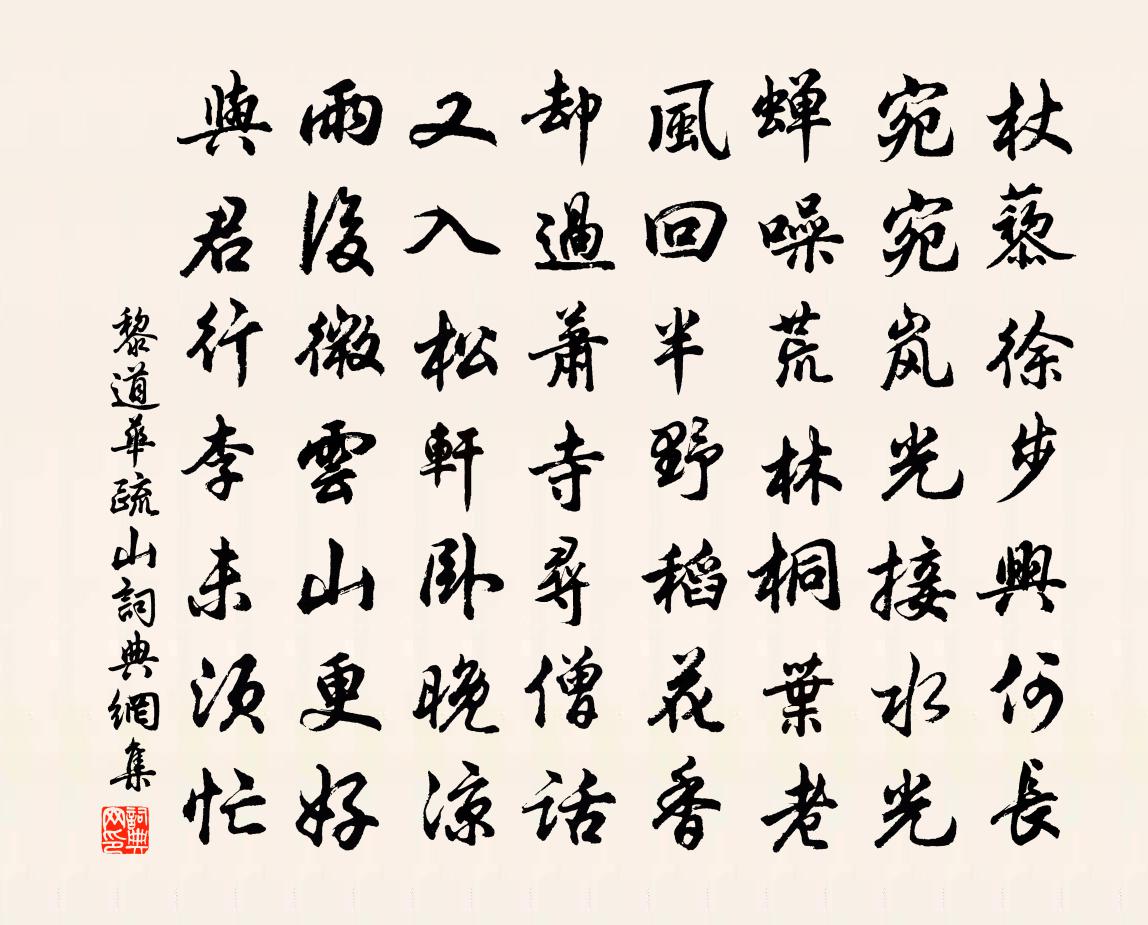 杖藜徐步興何長
宛宛岚光接水光
蝉噪荒林桐葉老
風回半野稻花香
却過蕭寺尋僧話
又入松軒卧晚涼
雨後微雲山更好
與君行李未須忙
黎道華疏山詞典網集
詞典
网印